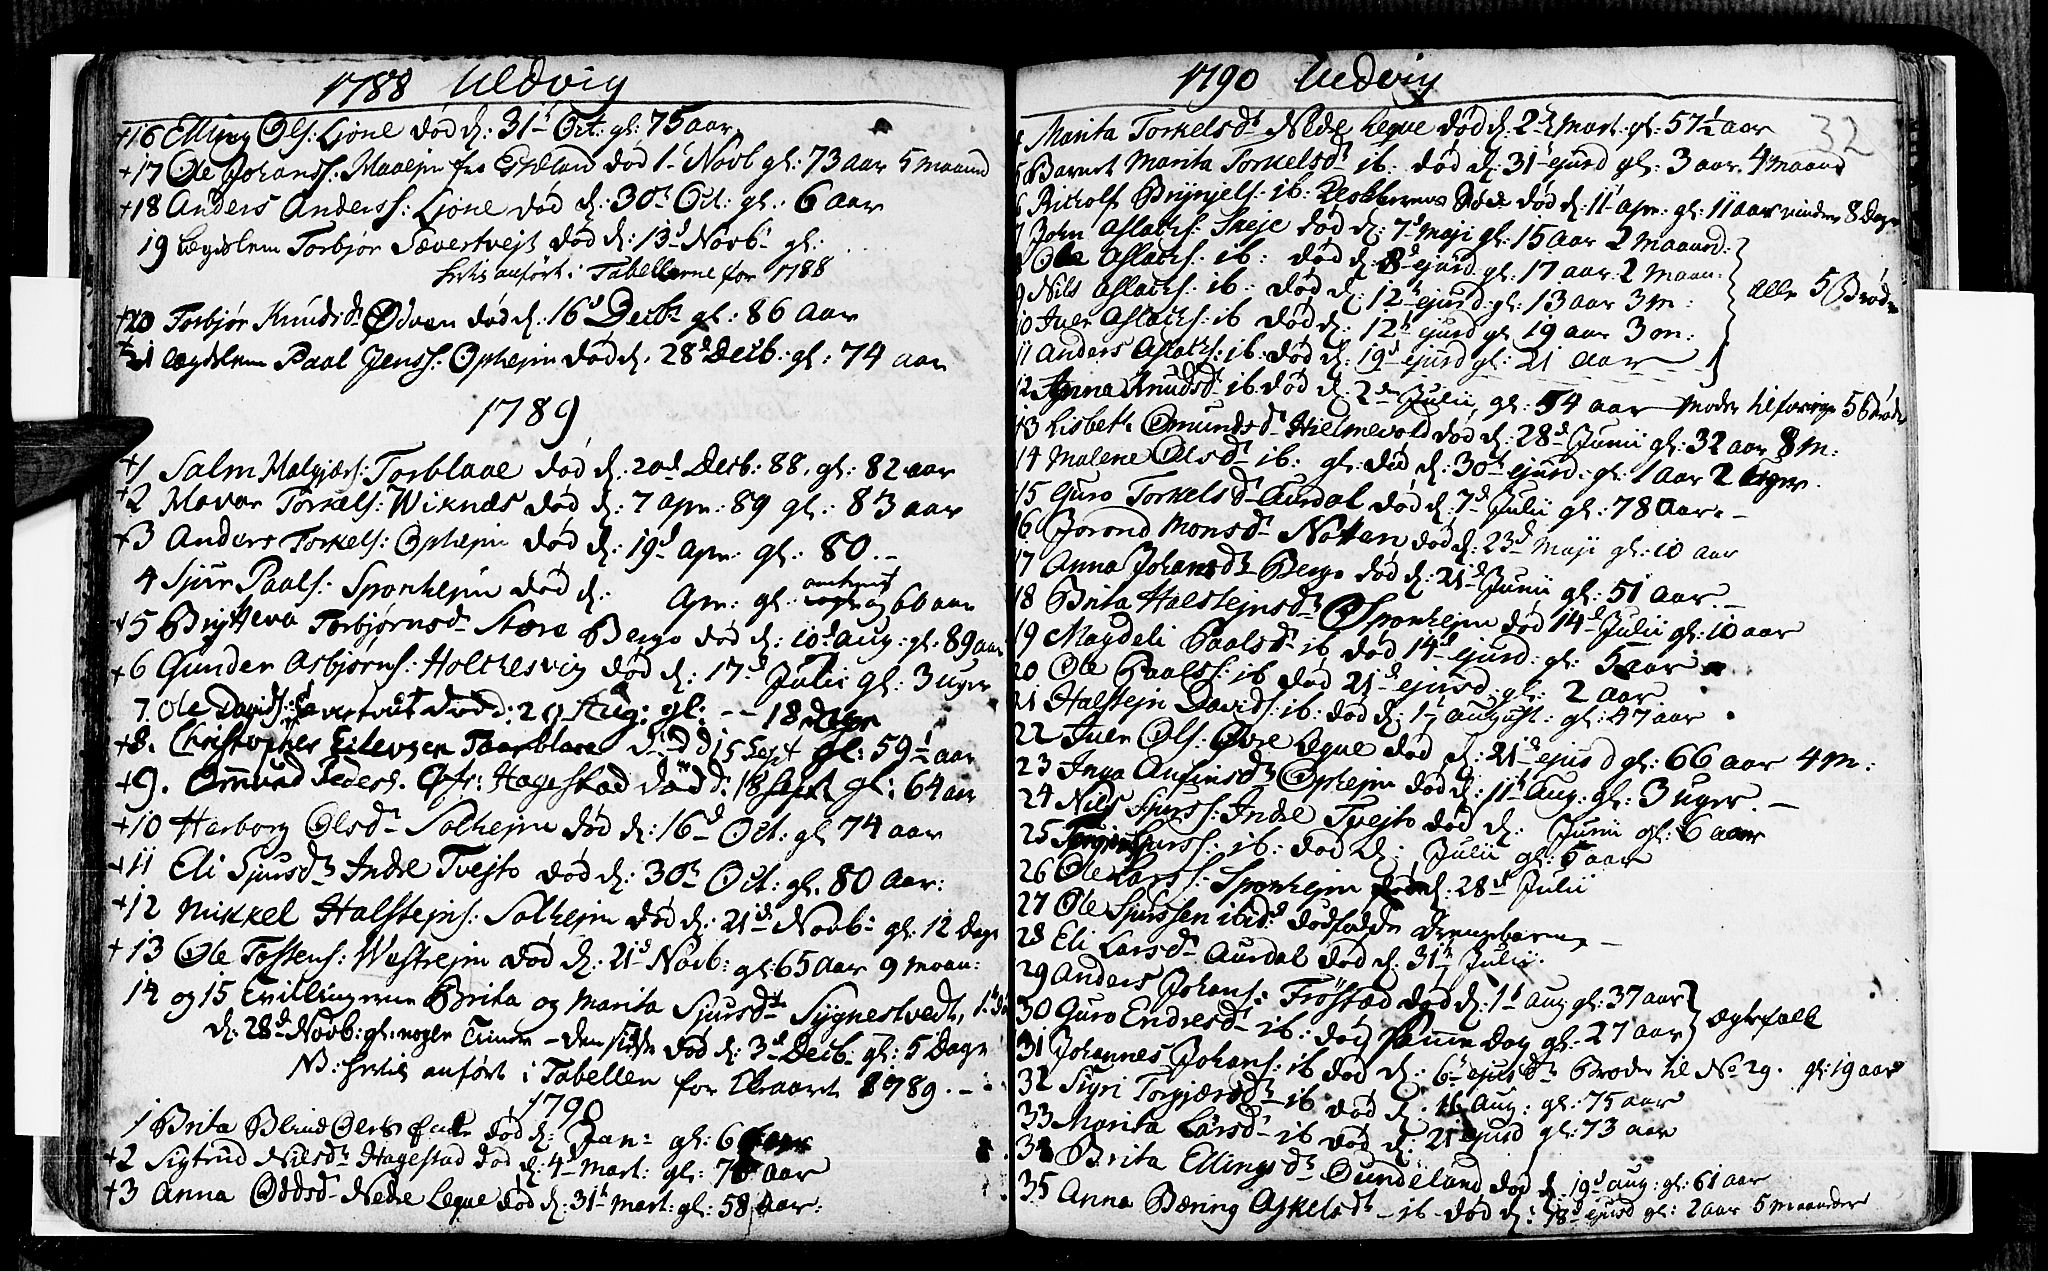 1788 Uldvig
+16 Elling Ols: Ljone død d: 31t Oct: gl: 75 aar
+17 Ole Johanss: Maalejn fra død 1t Novb gl: 73 aar 5 maaned
+18 Anders Anderss: Ljone død d: 30t Oct: gl: 6 aar
19 Legdslem Torbjør Sævertvejt død d: 13d Novb gl:
hertil anført i Tabellerne for 1788
+20 Torbjør Knudsd: Ødven død d: 16d Decb: gl: 86 aar
+21 Legdslem Paal Jenss: Ophejm død d. 28d Decb: gl: 74 aar
1789
+1 Salm Torblaae død d: 20d Decb: 88. gl: 82 aar
+2 Havor Torkels: Wiknæs død d: 7 apr: 89 gl: 83 aar
+3 Anders Torkels: Ophejm død d: 19d apr: gl: 80. -
4 Sjur Paals: Sponhejm død d: Apr: gl: 60 aar
+5 Brytteva Torbjørnsd Store Berge død d: 10d aug: gl: 89 aar
+6 Gunder Asbjørns: Holthesvig død d: 17d Julii gl: 3 uger
7. Ole Davids: død d: 29 Aug: gl: -- 18 dage
+8. Christopher Eilevsen Torblaae død d: 15 Sept gl: 59½ aar
+9. Ommund Peders. Hagestad død d: 18 Sept gl: 64 aar
+10 Herborg Olsd: Solhejm død d: 16d Oct: gl 74 aar
+11 Eli Sjursd: Indre Tvejto død d: 30t Oct: gl. 80 aar:
+12 Mikkel Halstejns: Solhejm død d: 21d Novb: gl: 12 Dage
+13 Ole Tostens: Westrejm død d: 21d Novb: gl: 65 aar 9 maan:
14 og 15 Tvillingerne Brita og Marita Sjursd: Sygnestvedt, 1t
d: 28d Novb: gl: nogle Timer - den sidste død d: 3d Decb: gl: 5 Dage
NB: hertil anført i Tabellen for Aaret 1789. -
1790
1 Brita Blind død d: Jan: gl: 6 aar
+2 Sigtrud Nilsd: Hagestad død d: 4d mart: gl: 70 aar
+3 Anna Oddsd Nedre Leque død d: 31t mart: gl: 58 aar:
1790 Uldvig
32
4 Marita Torkelsd: Nedre Leque død d: 2d mart: gl: 57½ aar
5 Barnet Marita Torkelsd: ib: død d: 31t ejusd gl: 3 aar. 4 maaned
6 Brynjels: ib: Klokkerens død d: 11t apr: gl: 11 aar minder 8 Dage
7 John Aslachs: Skeje død d: 7d maji gl: 15 aar 2 maaned:
8 Ole Aslachs: ib: død d: 8d ejusd gl: 17 aar 2 maan:
9 Nils Aslachs: ib: død d: 12t ejusd: gl: 13 aar 3 m:
alle 5 Brødre
10 Iver Aslachs: ib død d: 12t ejusd gl 19 aar 3 m:
11 Anders Aslachs: ib: død d: 19d ejusd gl: 21 aar
12 Anna Knudsd: ib død d: 2den Julii, gl: 54 aar Moder til forrige 5 Brødre
13 Lisbeth Omundsd: Hielmevold død d: 28d Junii gl: 32 aar 8 m:
14 Malene Olsd: ib: gl: død d: 30t ejusd: gl: 1 aar 2 uger.
15 Guro Torkelsd: Aurdal død d: 7d Julii gl: 78 aar. -
16 Jorond Monsd: Notten død d: 23d Maji gl: 10 aar
17 Anna Johansd: Berge død d: 21d Junii gl: 51 aar.
18 Brita Halstejnsd: Sponhejm død 14d Julii gl: 10 aar
19 Magdeli Paalsd: ib død 14d ejusd: gl: 5 aar
20 Ole Paals: ib død 21d ejusd: gl: 2 aar
21 Halstejn Davids: ib: død d: 17t august: gl: 47 aar
22 Iver Ols: Øvre Leque død d: 21d ejusd gl: 66 aar 4 m:
23 Inga Anfinsd: Ophejm død d: 11t Aug: gl: 3 uger. -
24 Nils Sjurs: Indre Tvejto død d: Junii gl: 6 aar
25 Sjurss: ib: død d: Julii gl: 5 aar
26 Ole Larss: Sponhejm død d: 28d Julii
27 Ole Sjurssen ibid: dødfødde Drengebarn -
28 Eli Larsd: Aurdal død d: 31t Julii.
29 Anders Johans: Frøstad død d: 1t aug gl: 37 aar
30 Guro Endresd: ib: død samme Dag gl: 27 aar
ægtefolk
31 Johannes Johans: ib død d: 6t ejusd: Broder til No 29. gl: 19 aar
32 Sigri Torgjersd: ib død d: 16 Aug: gl: 75 aar
33 Marita Larsd: ib død d: 21 ejusd gl: 73 aar
34 Brita Ellingsd: død d: 19d aug: gl: 61 aar
35 Anna Bæring Askelsd: - ib - død d: 18d ejusd gl: 2 aar 5 maaneder